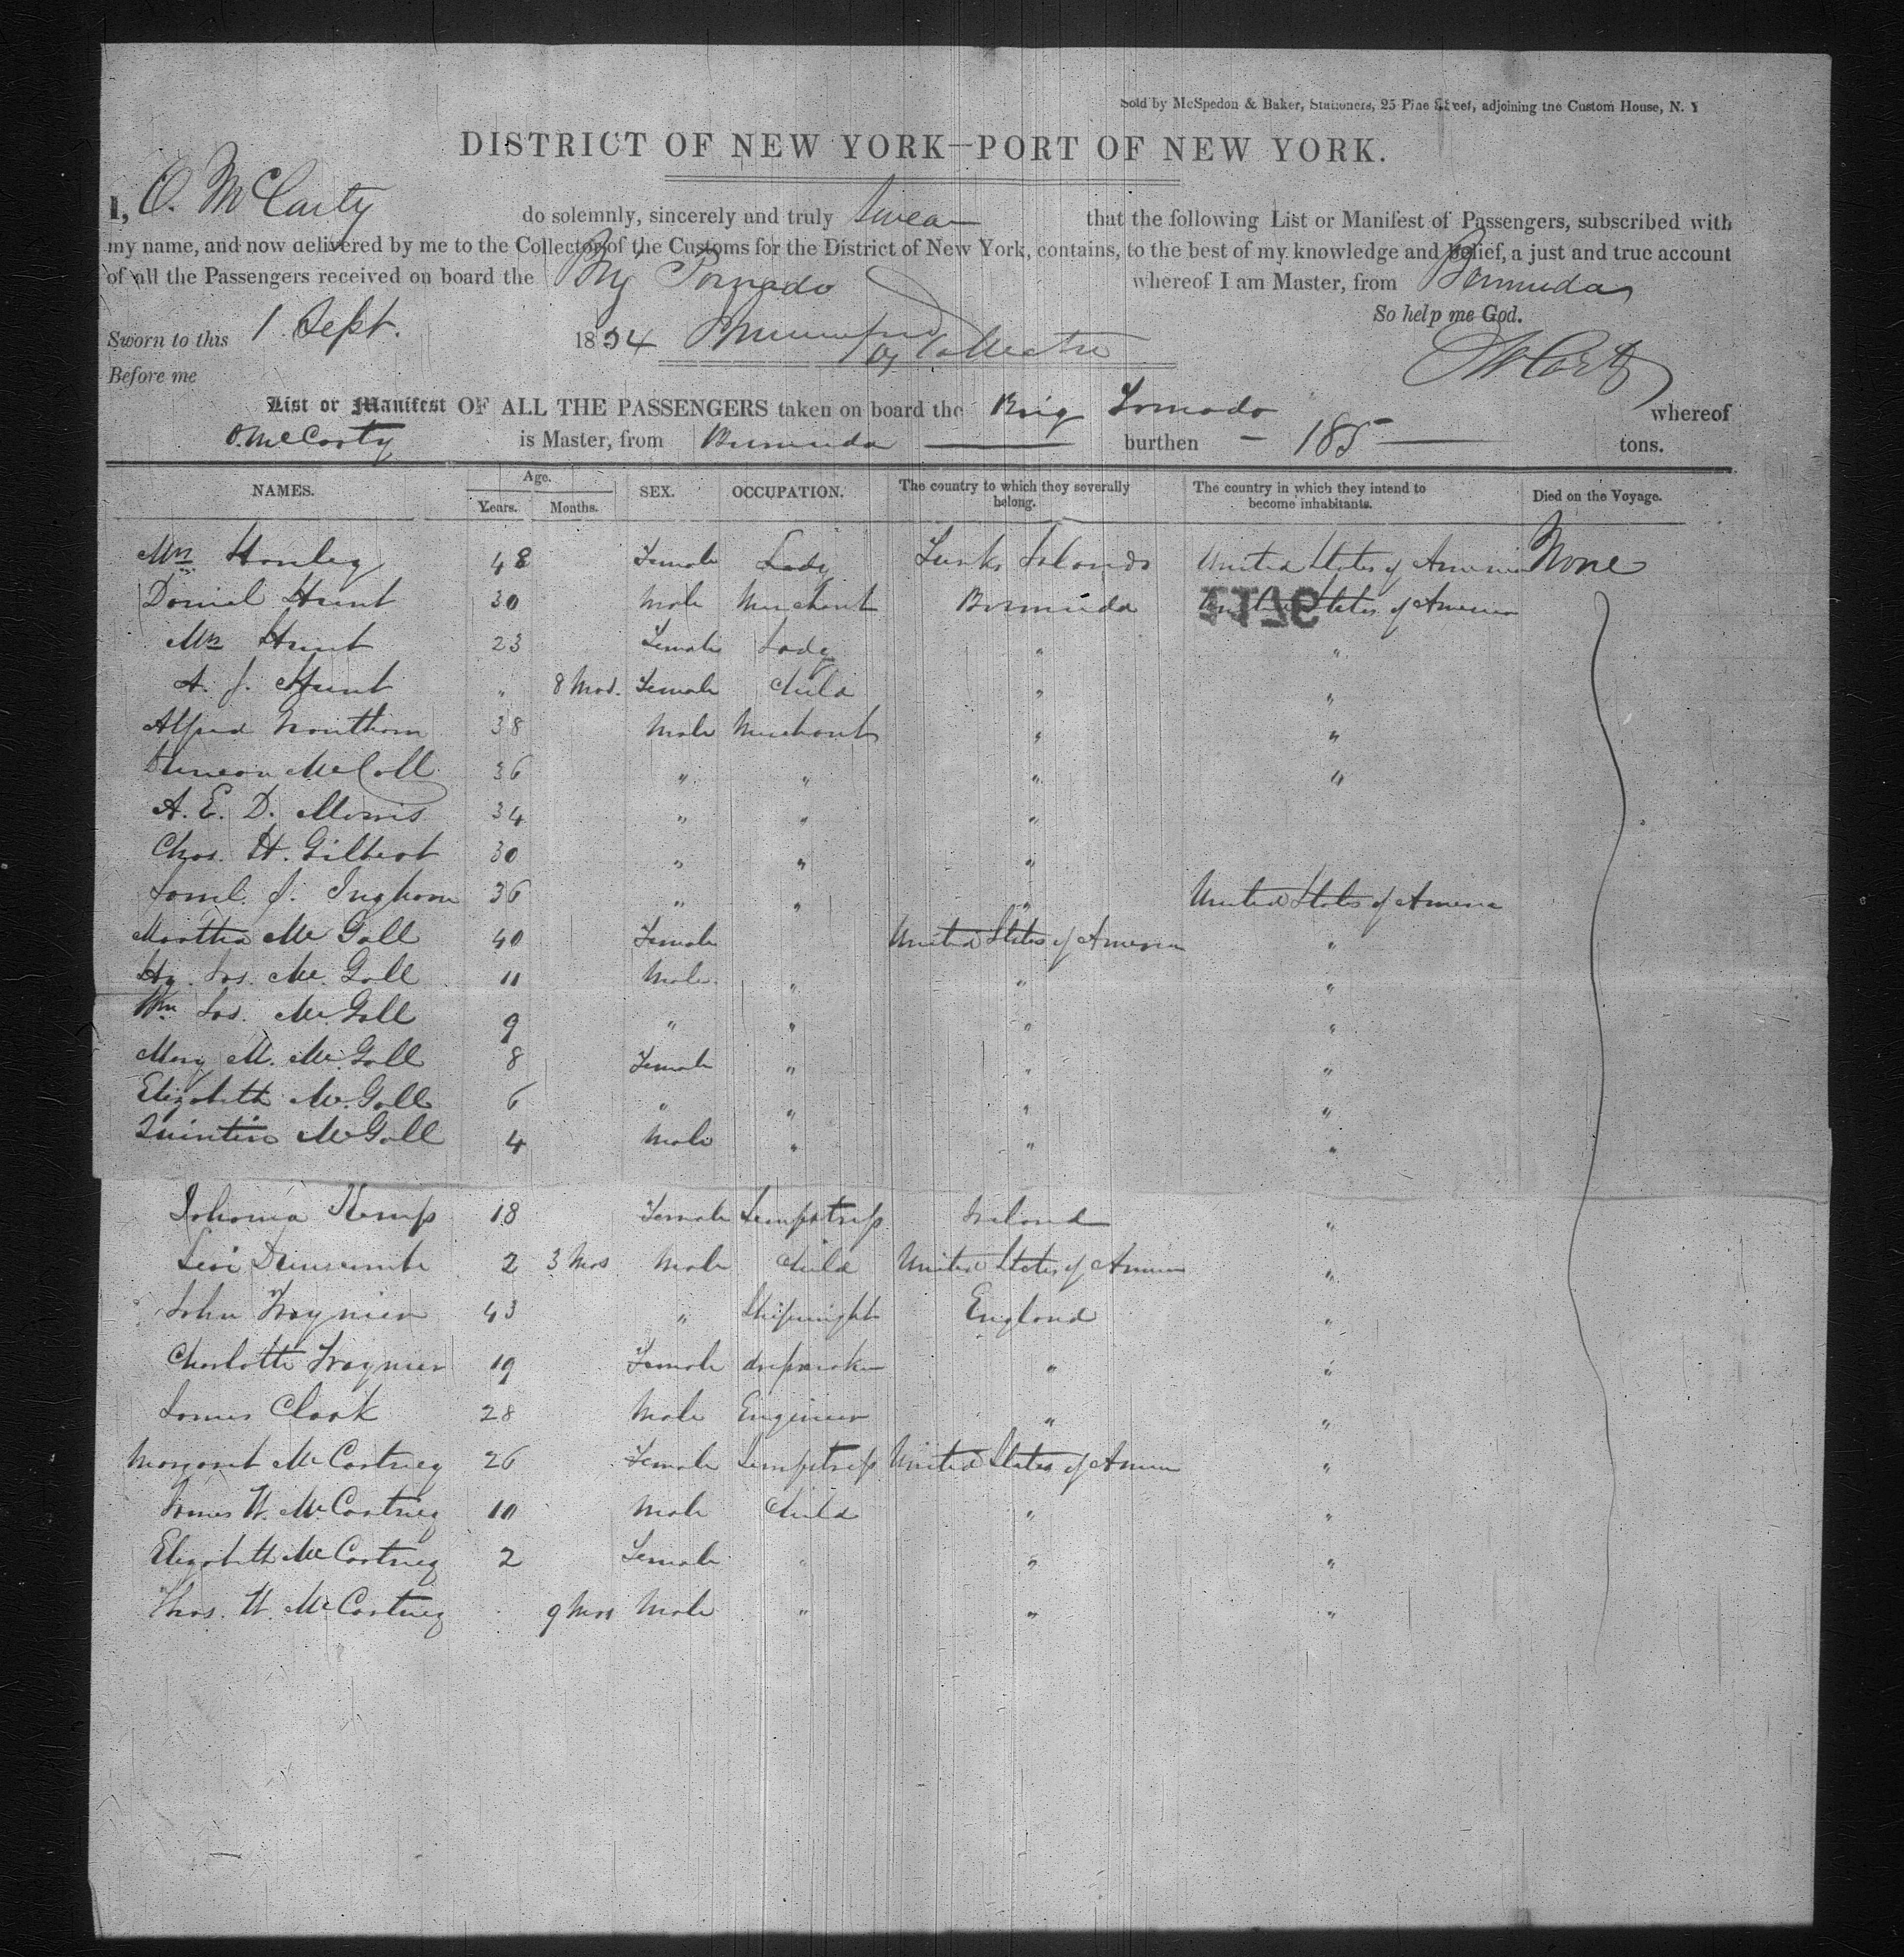 Sold by McSpedon & Baker, Stationers, 25 Pine Street, adjoining the Custom House, N. Y
DISTRICT OF NEW YORK—PORT OF NEW YORK.
I, O. McCarty do solemnly, sincerely and truly Swear that the following List or Manifest of Passengers, subscribed with
my name, and now delivered by me to the Collector of the Customs for the District of New York, contains, to the best of my knowledge and belief, a just and true account
of all the Passengers received on board the Brig Tornado whereof I am Master, from Bermuda
So help me God.
Sworn to this 1 Sept. 1854
Before me Dy Collector O McCarty
List or Manifest OF ALL THE PASSENGERS taken on board the Brig Tornado whereof
O. McCarty is Master, from Bermuda burthen 185 tons.
NAMES. Age. Years. Months. SEX. OCCUPATION. The country to which they severally belong. The country in which they intend to become inhabitants. Died on the Voyage.
Mrs 48 Female Lady Turks Islands United States of America None
Daniel Hunt 30 Male Merchant Bermuda United States of America
Mrs Hunt 23 Female Lady " "
A. J. Hunt " 8 Mos. Female Child " "
Alfred 38 Male Merchant " "
Duncan McColl 36 " " " "
A. E. D. Morris 34 " " "
Chas. H. Gilbert 30 " " "
Saml. J. Ingham 36 " " " United States of America
Martha Mc Gall 40 Female United States of America "
Hy. Jas. Mc. Gall 11 Male " " "
Wm Jas. Mc. Gall 9 " " " "
Mary M. Mc. Gall 8 Female " " "
Elizabeth Mc. Gall 6 " " " "
Quintin McGall 4 Male " " "
Johanna Kemp 18 Female Sempstress Ireland "
Levi 2 3 Mos Male Child United States of America "
John 43 " Shipwright England "
Charlotte 19 Female dressmaker " "
James Clark 28 Male Engineer " "
Margaret McCartney 26 Female Sempstress United States of America "
James W. McCartney 10 Male Child " "
Elizabeth McCartney 2 Female " " "
Thos. W. McCartney 9 Mos Male " " "